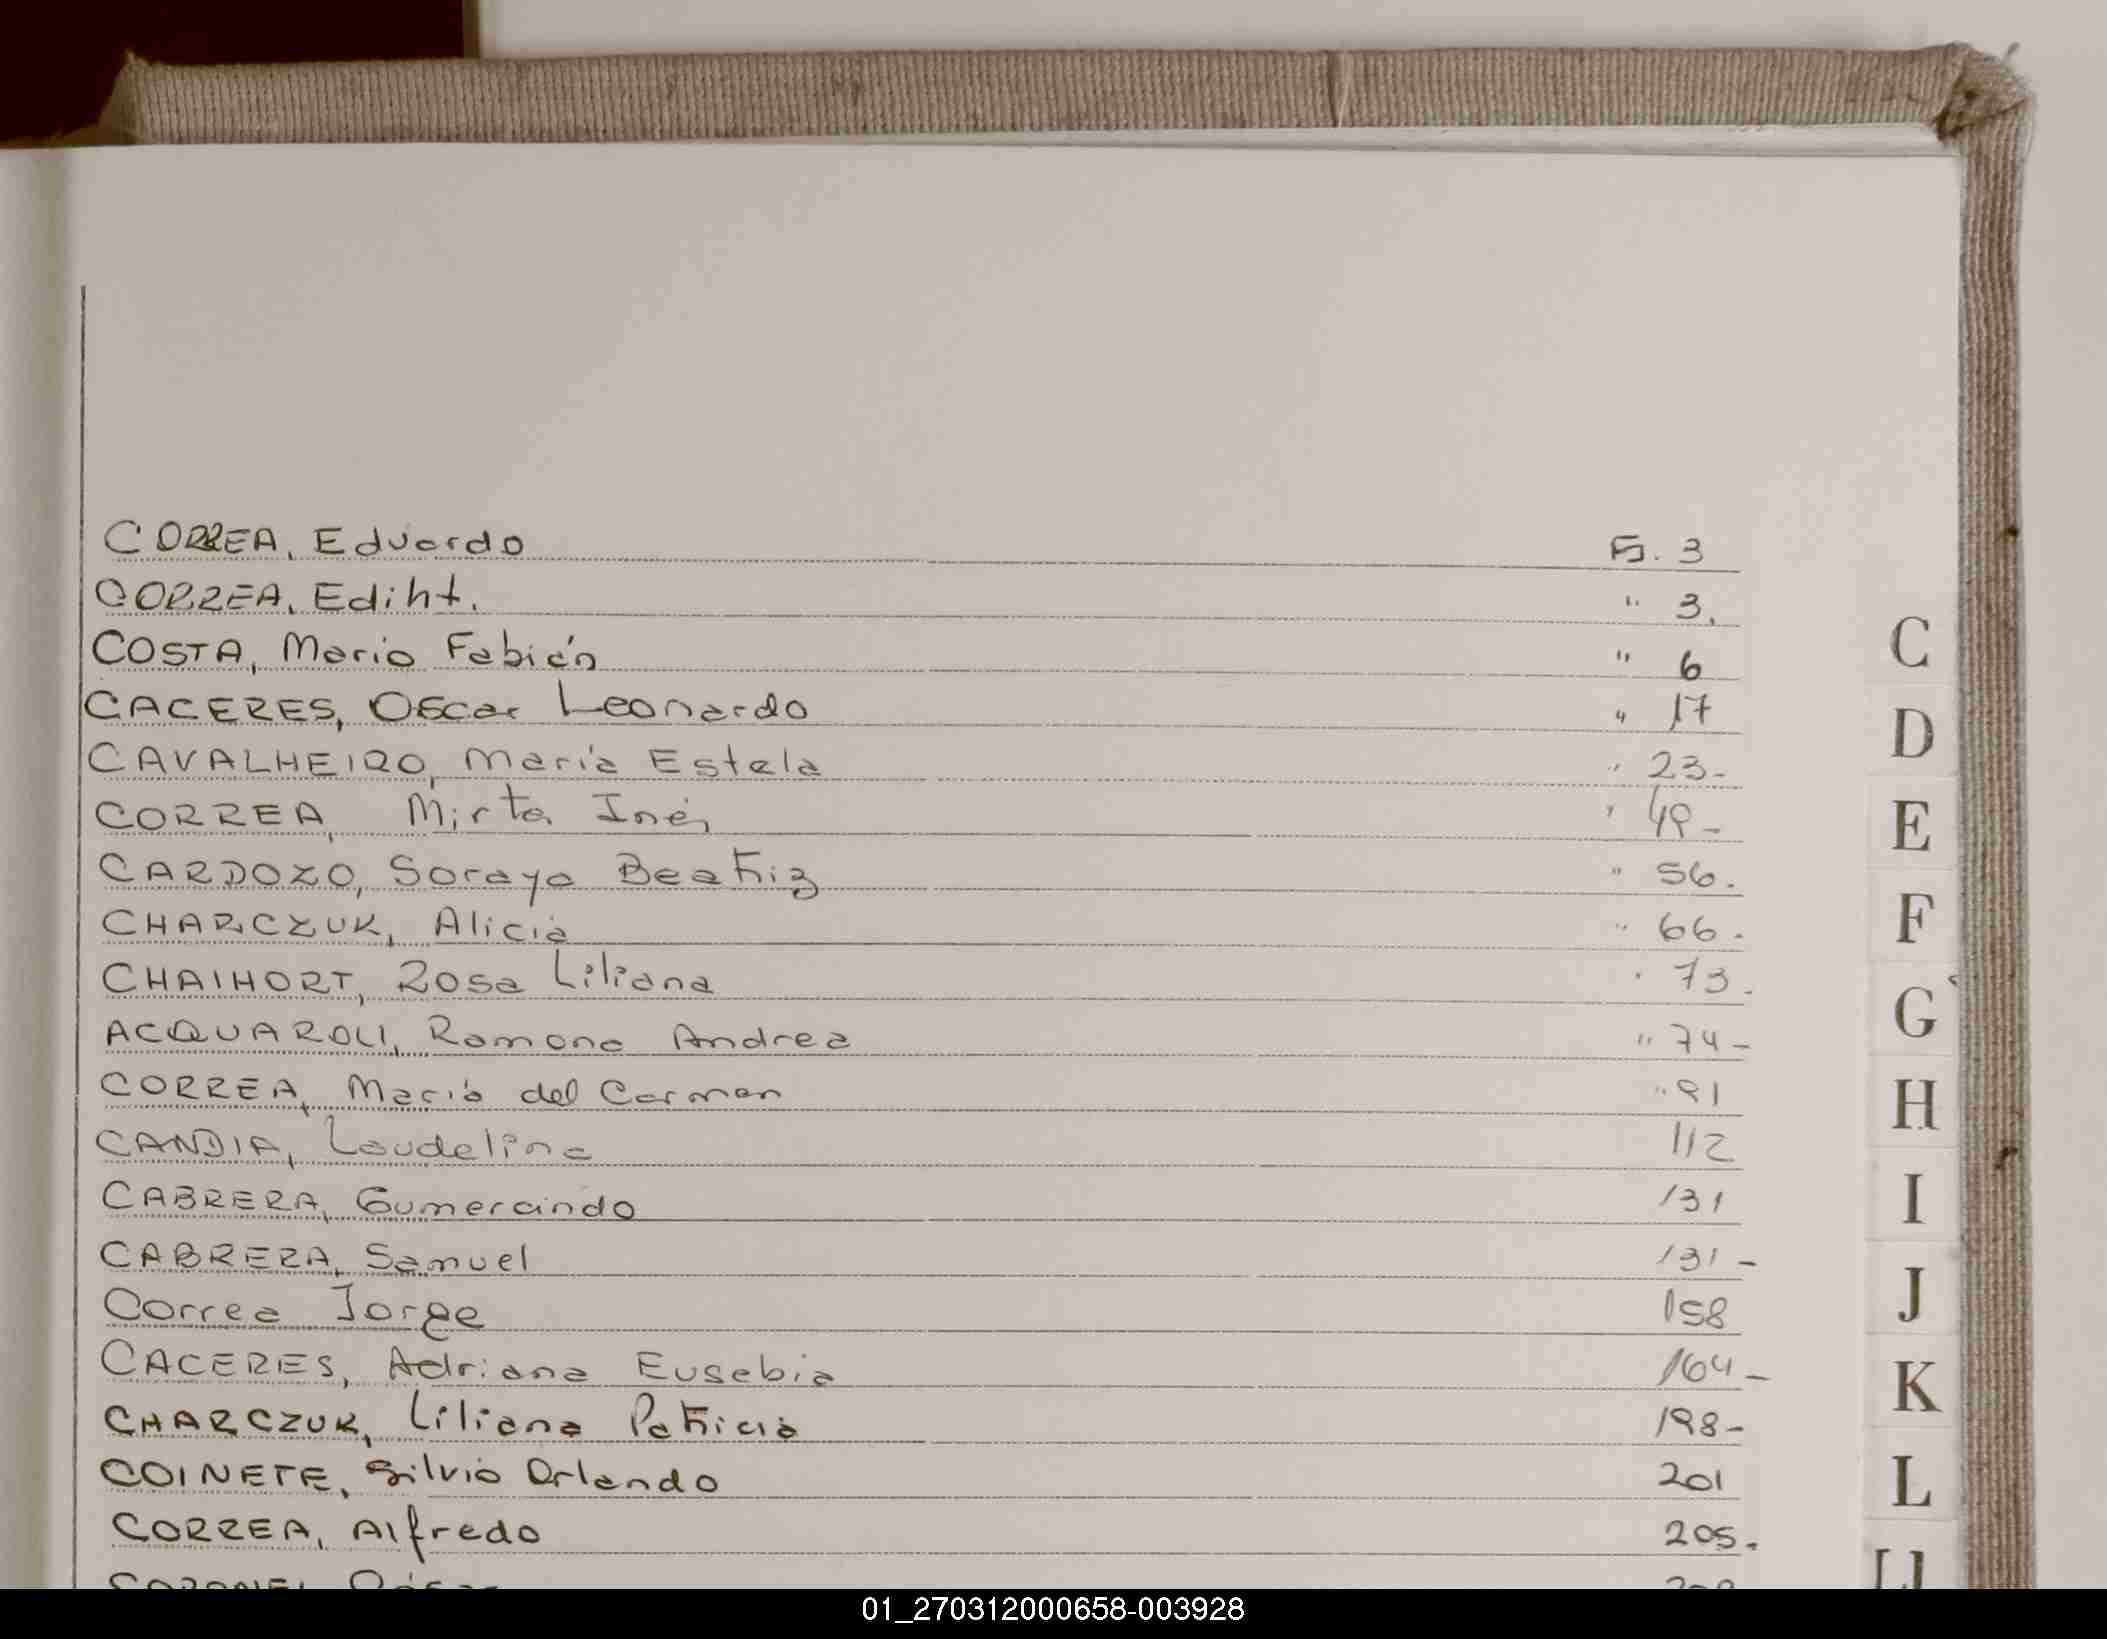 CORREA, Eduardo Fs. 3
CORREA, Ediht. " 3.
COSTA, Mario Fabián " 6
CACERES, Oscar Leonardo " 17
CAVALHEIRO, María Estela " 23-
CORREA, Mirta Inés " 49-
CARDOZO, Soraya Beatriz " 56.
CHARCZUK, Alicia " 66.
CHAIHORT, Rosa Liliana " 73.
ACQUAROLI, Ramona Andrea " 74-
CORREA, María del Carmen " 91
CANDIA, Laudelina 112
CABRERA, Gumercindo 131
CABRERA, Samuel 131-
Correa Jorge 158
CACERES, Adriana Eusebia 164-
CHARCZUK, Liliana Patricia 198-
COINETE, Silvio Orlando 201
CORREA, Alfredo 205.
C
D
E
F
G
H
I
J
K
L
01_270312000658-003928